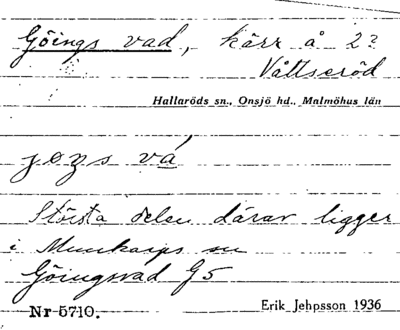 Göings vad, kärr å 2?
Våttseröd
Hallaröds sn., Onsjö hd., Malmöhus län
jøzs vá
Största delen därav ligger
i Munkarps sn
Göingsvad G5
Nr 5710. Erik Jehpsson 1936